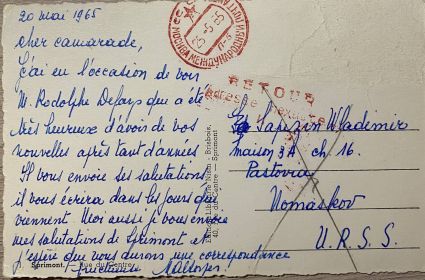 20 mai 1965
cher camarade,
j'ai eu l'occasion de voir
M. Rodolphe Defays qui a été
très heureux d'avoir de vos
nouvelles après tant d'années
Il vous envoie ses salutations
il vous écrira dans les jours qui
viennent. Moi aussi je vous envoie
mes salutations de Sprimont et
j'espère que vous aurons une correspondance
Sprimont. — Rue du Centre
40, Rue du Centre — Sprimont
МОСКВА МЕЖДУНАРОДНЫЙ
RETOUR
Wladimir
maison 3A ch 16.
U.R.S.S.